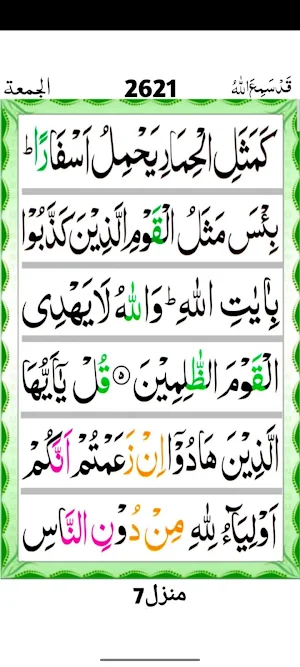 الجمعة 2621 قَدْسَمِعَ اللّٰهُ
كَمَثَلِ الْحِمَارِ يَحْمِلُ اَسْفَارًا ؕ
بِئْسَ مَثَلُ الْقَوْمِ الَّذِيْنَ كَذَّبُوْا
بِاٰيٰتِ اللّٰهِ ؕ وَاللّٰهُ لَا يَهْدِى
الْقَوْمَ الظّٰلِمِيْنَ ۝۵ قُلْ يٰۤاَيُّهَا
الَّذِيْنَ هَادُوْۤا اِنْ زَعَمْتُمْ اَنَّكُمْ
اَوْلِيَآءُ لِلّٰهِ مِنْ دُوْنِ النَّاسِ
منزل7